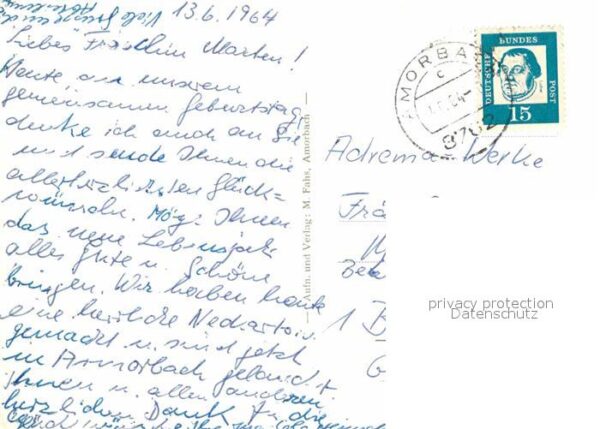 13.6.1964
Viele Grüße
Liebes Fräulein Marten!
Heute an unserem
gemeinsamen Geburtstag
denke ich auch an Sie
und sende Ihnen die
allerherzlichsten Glück-
wünsche. Möge Ihnen
das neue Lebensjahr
alles Gute u. Schöne
bringen. Wir haben heute
eine herrliche Neckartour
gemacht u. sind jetzt
in Amorbach gelandet.
Ihnen u. allen anderen
herzlichen Dank für die
Aufn. und Verlag: M. Fahs, Amorbach
AMORBACH
c
8762
DEUTSCHE
BUNDES
POST
15
Adrema-Werke
1 B
privacy protection
Datenschutz